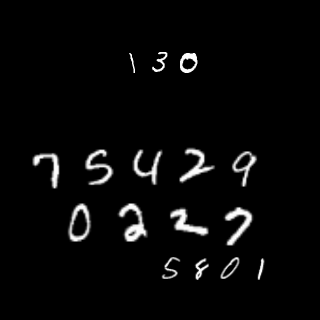 130
75429
0227
5801